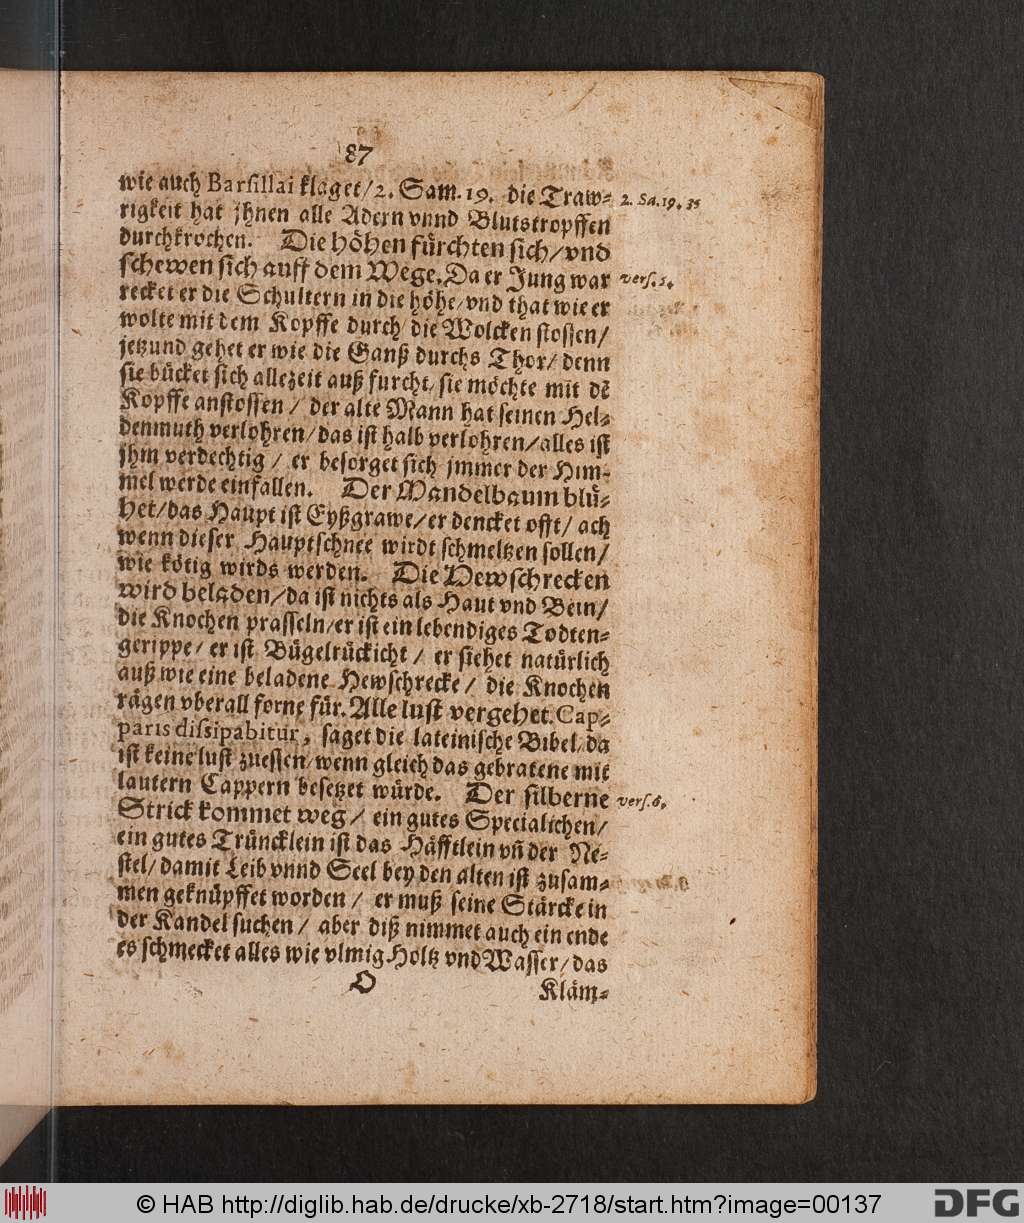 87
wie auch Barsillai klaget/2. Sam. 19. die Traw- 2. Sa. 19. 35
rigkeit hat jhnen alle Adern vnnd Blutstropffen
durchkrochen. Die höhen fürchten sich/vnd
schewen sich auff dem Wege. Da er Jung war vers. 5.
recket er die Schultern in die höhe/vnd that wie er
wolte mit dem Kopffe durch die Wolcken stossen/
jetzund gehet er wie die Ganß durchs Thor/denn
sie bücket sich allezeit auß furcht/sie möchte mit dē
Kopffe anstossen/der alte Mann hat seinen Hel-
denmuth verlohren/das ist halb verlohren/alles ist
jhm verdechtig/er besorget sich jmmer der Him-
mel werde einfallen. Der Mandelbaum blü-
het/das Haupt ist Eyßgrawe/er dencket offt/ach
wenn dieser Hauptschnee wirdt schmeltzen sollen/
wie kötig wirds werden. Die Hewschrecken
wird beladen/da ist nichts als Haut vnd Bein/
die Knochen prasseln/er ist ein lebendiges Todten-
gerippe/er ist Bügelrückicht/er siehet natürlich
auß wie eine beladene Hewschrecke/die Knochen
rägen vberall forne für. Alle lust vergehet. Cap-
paris dissipabitur, saget die lateinische Bibel/da
ist keine lust zuessen/wenn gleich das gebratene mit
lautern Cappern besetzet würde. Der silberne vers. 6.
Strick kommet weg/ein gutes Specialichen/
ein gutes Trüncklein ist das Häfftlein vñ der Ne-
stel/damit Leib vnnd Seel bey den alten ist zusam-
men geknüpffet worden/er muß seine Stärcke in
der Kandel suchen/aber diß nimmet auch ein ende
es schmecket alles wie vlmig Holtz vnd Wasser/das
O Kläm-
© HAB http://diglib.hab.de/drucke/xb-2718/start.htm?image=00137
DFG